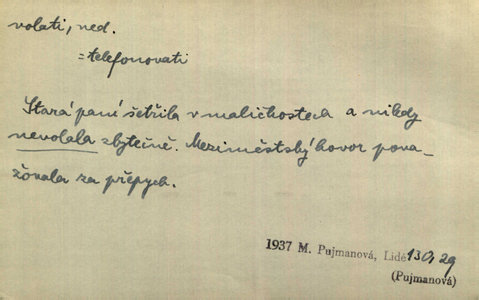 volati, ned.
=telefonovati
Stará paní šetřila v maličkostech a nikdy
nevolala zbytečně. Meziměstský hovor pova-
žovala za přepych.
1937 M. Pujmanová, Lidé 130, 29
(Pujmanová)